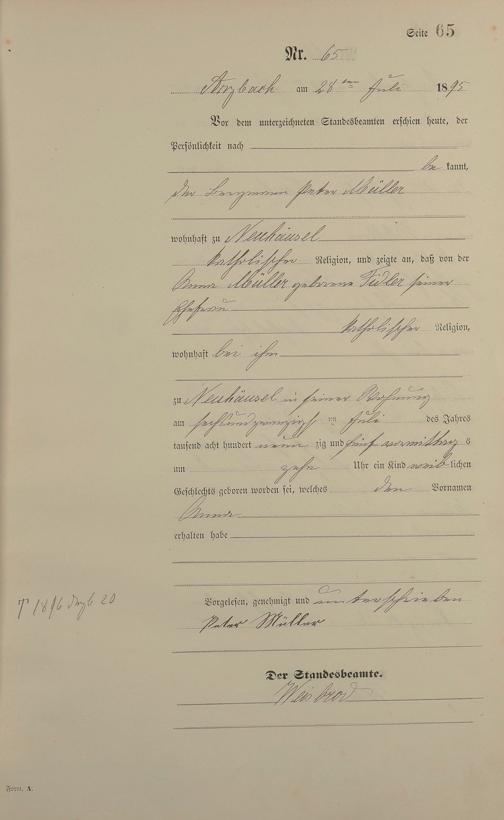 Seite 65
Nr. 65
Arzbach am 28 ten Juli 1895
Vor dem unterzeichneten Standesbeamten erschien heute, der
Persönlichkeit nach
be kannt,
der Bergmann Peter Müller
wohnhaft zu Neuhäusel
katholischer Religion, und zeigte an, daß von der
Anna Müller geborene Fidler seiner
Ehefrau
katholischer Religion,
wohnhaft bei ihm
zu Neuhäusel in seiner Wohnung
am sechsundzwanzigst en Juli des Jahres
tausend acht hundert neun zig und fünf vormittag s
um zehn Uhr ein Kind weib lichen
Geschlechts geboren worden sei, welches den Vornamen
Anna
erhalten habe
† 1896 20
Vorgelesen, genehmigt und unterschrieben
Peter Müller
Der Standesbeamte.
Weisbrod
Form. A.